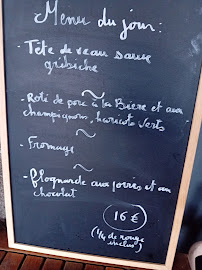 Menu du jour:
- Tête de veau sauce
gribiche
- Roti de porc à la Bière et aux
champignons, haricots verts
- Fromage
- Flognarde aux poires et au
chocolat
16 €
(1/4 de rouge
inclus)